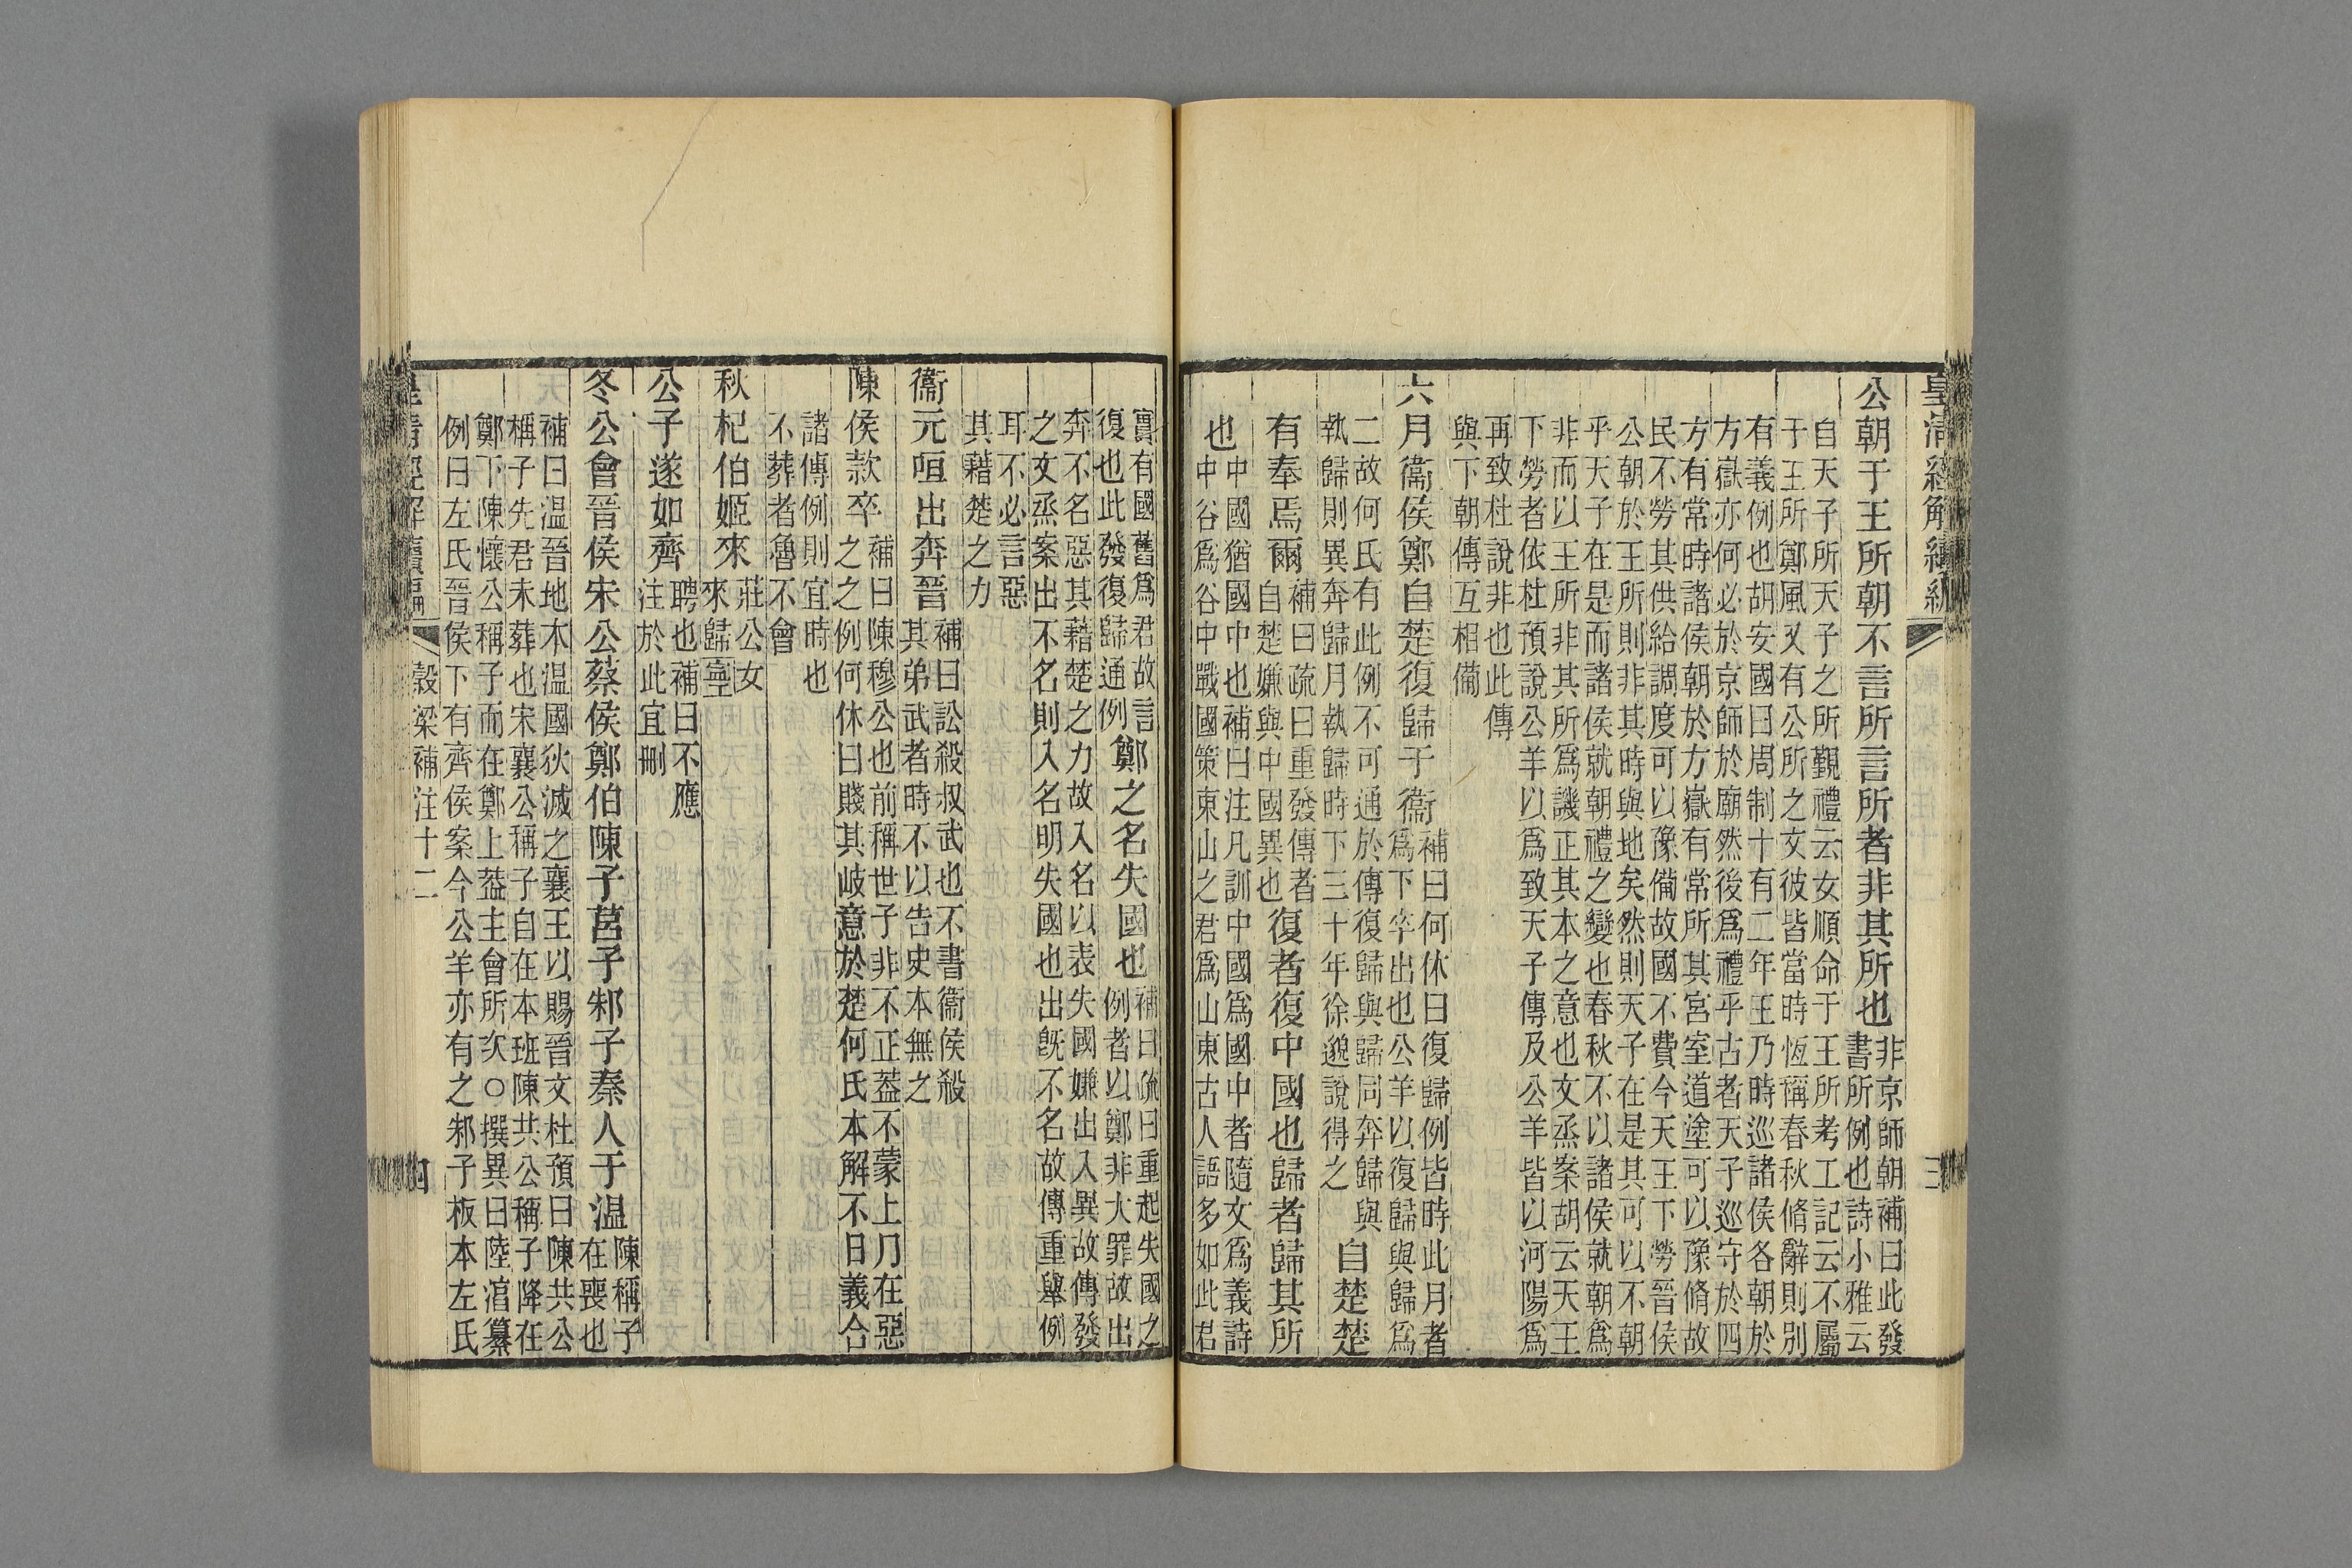 皇清經解續編
三
公朝于王所朝不言所言所者非其所也
非京師朝補曰此發
書所例也詩小雅云
自天子所天子之所覲禮云女順命于王所考工記云不屬
于王所鄭風又有公所之文彼皆當時恆稱春秋脩辭則別
有義例也胡安國曰周制十有二年王乃時巡諸侯各朝於
方嶽亦何必於京師於廟然後爲禮乎古者天子巡守於四
方有常時諸侯朝於方嶽有常所其宮室道塗可以豫脩故
民不勞其供給調度可以豫備故國不費今天王下勞晉侯
公朝於王所則非其時與地矣然則天子在是其可以不朝
乎天子在是而諸侯就朝禮之變也春秋不以諸侯就朝爲
非而以王所非其所爲譏正其本之意也文烝案胡云天王
下勞者依杜預說公羊以爲致天子傳及公羊皆以河陽爲
再致杜說非也此傳
與下朝傳互相備
六月衞侯鄭自楚復歸于衞
補曰何休曰復歸例皆時此月者
爲下卒出也公羊以復歸與歸爲
二故何氏有此例不可通於傳復歸與歸同奔歸與
執歸則異奔歸月執歸時下三十年徐邈說得之
自楚楚
有奉焉爾
補曰疏曰重發傳者
自楚嫌與中國異也
復者復中國也歸者歸其所
也
中國猶國中也補曰注凡訓中國爲國中者隨文爲義詩
中谷爲谷中戰國策東山之君爲山東古人語多如此君
實有國舊爲君故言
復也此發復歸通例
鄭之名失國也
補曰疏曰重起失國之
例者以鄭非大罪故出
奔不名惡其藉楚之力故入名以表失國嫌出入異故傳發
之文烝案出不名則入名明失國也出旣不名故傳重舉例
耳不必言惡
其藉楚之力
衞元咺出奔晉
補曰訟殺叔武也不書衞侯殺
其弟武者時不以告史本無之
陳侯款卒
補曰陳穆公也前稱世子非不正葢不蒙上月在惡
之之例何休曰賤其歧意於楚何氏本解不日義合
諸傳例則宜時也
不葬者魯不會
秋杞伯姬來
莊公女
來歸寧
公子遂如齊
聘也補曰不應
注於此宜刪
冬公會晉侯宋公蔡侯鄭伯陳子莒子邾子秦人于温
陳稱子
在喪也
補曰温晉地本温國狄滅之襄王以賜晉文杜預曰陳共公
稱子先君未葬也宋襄公稱子自在本班陳共公稱子降在
鄭下陳懷公稱子而在鄭上葢主會所次○撰異曰陸湻纂
例曰左氏晉侯下有齊侯案今公羊亦有之邾子板本左氏
皇清經解續編
穀梁補注十二
四